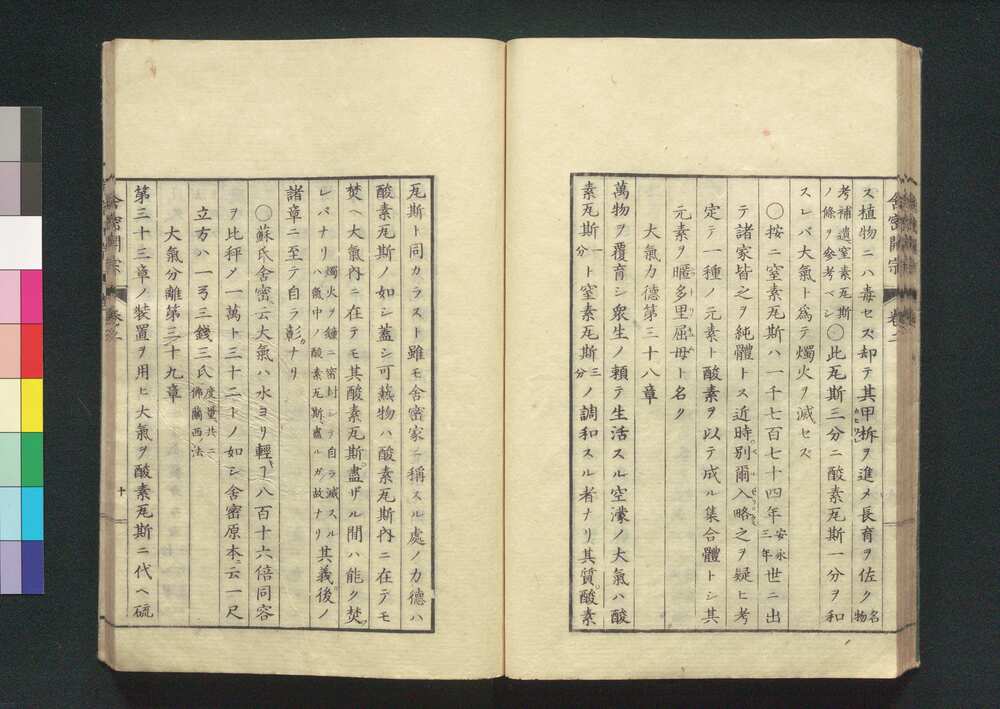 ス植物ニハ毒セズ却テ其甲拆ヲ進メ長育ヲ佐ク名物
考補遺窒素瓦斯ノ條ヲ參考ベシ〇此瓦斯三分ニ酸素瓦斯一分ヲ和
スレバ大氣ト爲テ燭火ヲ滅セズ
〇按ニ窒素瓦斯ハ一千七百七十四年安永三年世ニ出
テ諸家皆之ヲ純體トス近時別爾入略之ヲ疑ヒ考
定テ一種ノ元素ト酸素ヲ以テ成ル集合體トシ其
元素ヲ暱多里屈母ト名ク
大氣力德第三十八章
萬物ヲ覆育シ衆生ノ賴テ生活スル空濛ノ大氣ハ酸
素瓦斯一分ト窒素瓦斯三分ノ調和スル者ナリ其質酸素
舎密開宗
卷之二
瓦斯ト同カラスト雖モ舎密家ニ稱スル處ノ力德ハ
酸素瓦斯ノ如シ蓋シ可燕物ハ酸素瓦斯內ニ在テモ
焚ヘ大氣內ニ在テモ其酸素瓦斯盡ザル間ハ能ク焚
レバナリ燭火ヲ罐ニ密封シテ自ラ滅スルハ氣中ノ酸素瓦斯盡ルガ故ナリ其義後ノ
諸章ニ至テ自ラ彰ナリ
〇蘇氏舎密云大氣ハ水ヨリ輕丁八百十六倍同容
ヲ比秤メ一萬ト三十二トノ如シ舎密原本云一尺
立方ハ一弓三錢三氏度量共ニ佛蘭西法
大氣分離第三十九章
第三十三章ノ裝置ヲ用ヒ大氣ヲ酸素瓦斯ニ代ヘ硫
舎密開宗
卷之二
十